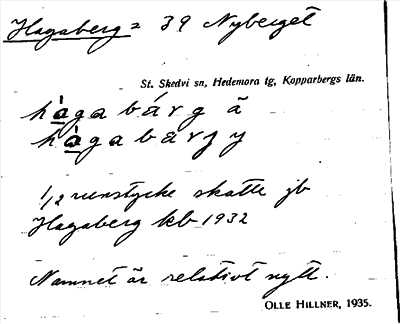 Hagaberg = 39 Nyberget
St. Skedvi sn, Hedemora tg, Kopparbergs län.
hàga bárg ä
hàga bárg y
1/2 runstycke skatte jb
Hagaberg kb 1932
Namnet är relativt nytt.
OLLE HILLNER, 1935.